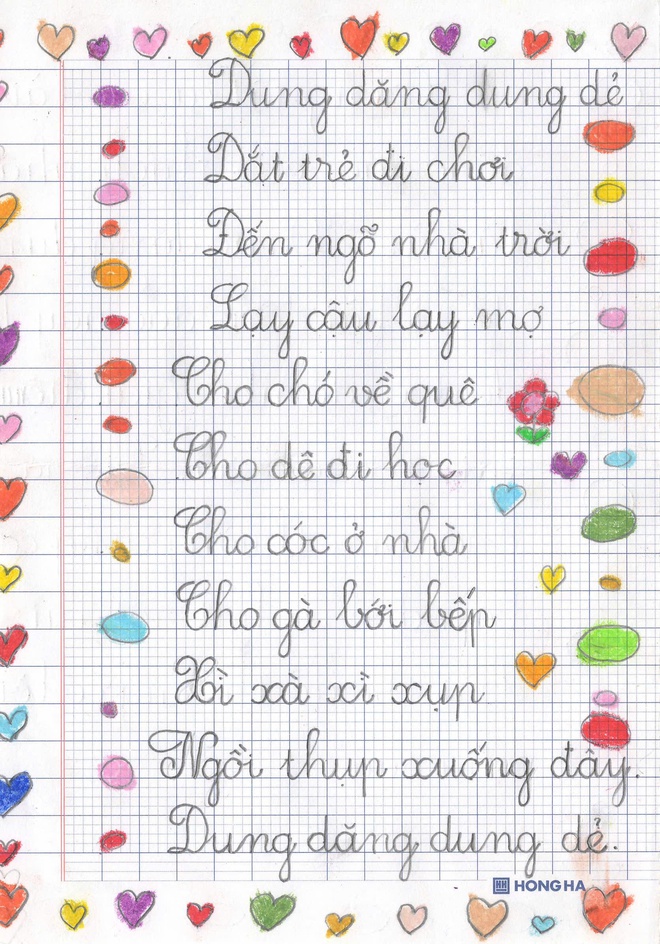 Dung dăng dung dẻ
Dắt trẻ đi chơi
Đến ngõ nhà trời
Lạy cậu lạy mợ
Cho chó về quê
Cho dê đi học
Cho cóc ở nhà
Cho gà bới bếp
Xì xà xì xụp
Ngồi thụp xuống đây.
Dung dăng dung dẻ.
HH HONG HA